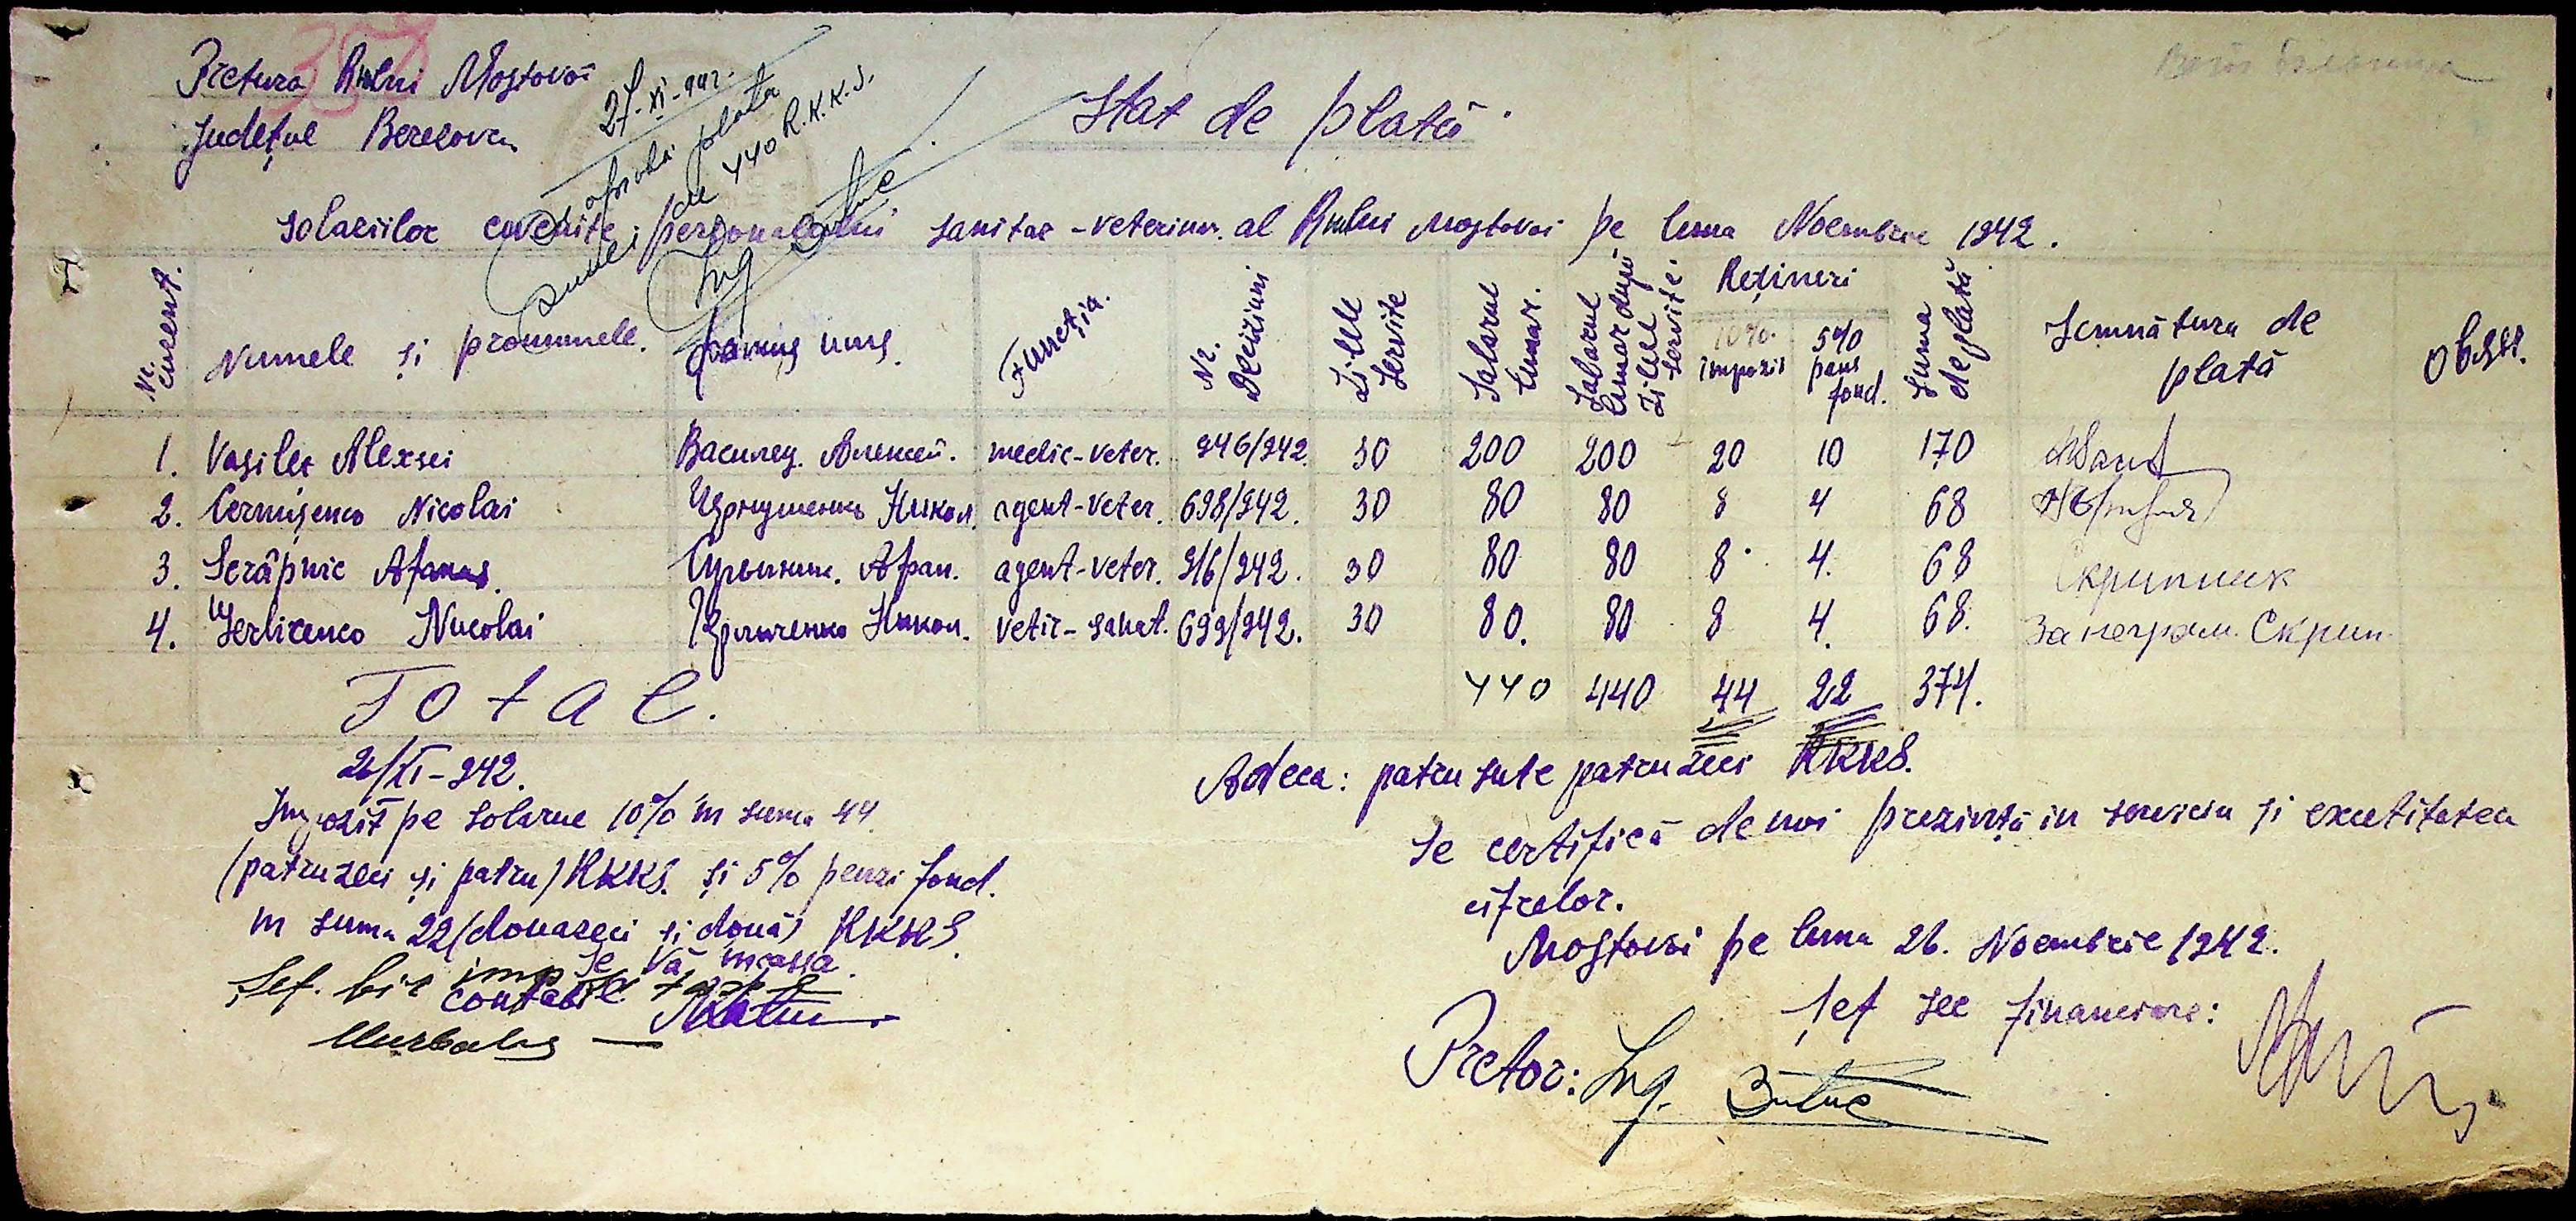 Pretura Rnlui Mostovoi
Județul Berezovca
27-XI-942.
Se aprobă plata
sumei de 440 R.K.K.S.
Ing Butuc
Stat de plată.
Salariilor cuvenite personalului sanitar-veterinar. al Rnlui Mostovoi pe luna Noembrie 1942.
Nr. curent. Numele și pronumele. Функția. Nr. Deciziuni Zilele servite Salarul lunar. Salarul lunar după zilele servite. Rețineri 10% impozit 5% pens fond. Suma de plată Semnătura de plată Obser.
1. Vasileț Alexei Василец. Алексей. medic-veter. 946/942. 30 200 200 20 10 170
2. Cernușenco Nicolai Чернушенко Никол. agent-veter. 698/942. 30 80 80 8 4 68
3. Scrâpnic Afanas. Скрыпник. Афан. agent-veter. 916/942. 30 80 80 8 4. 68 Скрипник
4. Nicolai Никол. vetir-sanat. 699/942. 30 80. 80 8 4. 68. За неграм. Скрип
Total. 440 440 44 22 374.
26/XI-942.
Impozit pe salarue 10% în suma 44
(patruzeci și patru) RKKS. și 5% pensi fond.
în suma 22 (douazeci și două) RKKS
se va incassa.
Șef. bir imp și taxe
contabil
Adeca: patru sute patruzeci RKKS.
Se certifică de noi prezintă in serviciu și exactitatea
cifrelor.
Mostovoi pe luna 26. Noembrie 1942.
Șef sec financiare:
Pretor: Ing. Butuc